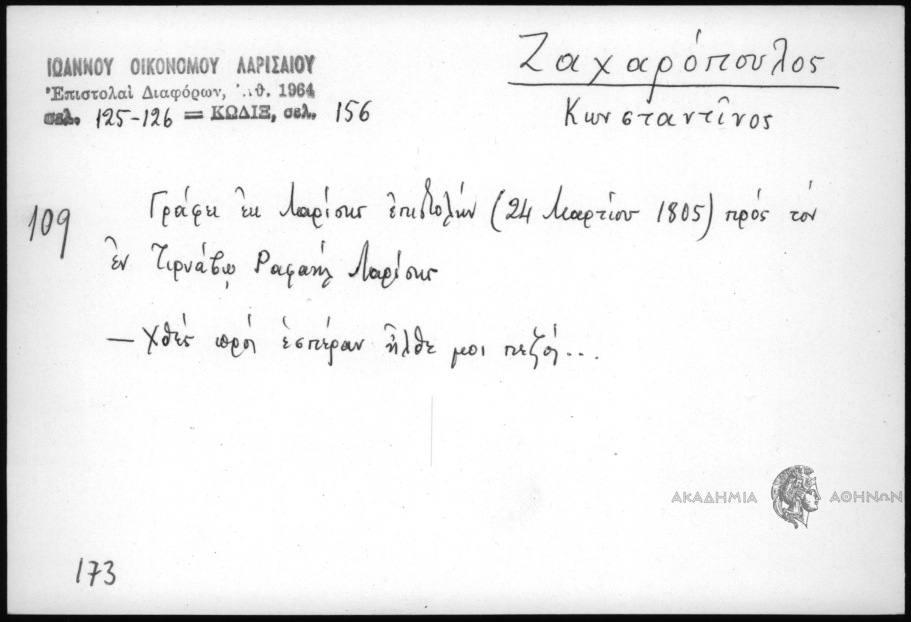 ΙΩΑΝΝΟΥ ΟΙΚΟΝΟΜΟΥ ΛΑΡΙΣΑΙΟΥ
Ἐπιστολαὶ Διαφόρων, Ἀθ. 1964
σελ. 125-126 = ΚΩΔΙΞ, σελ. 156
Ζαχαρόπουλος
Κωνσταντῖνος
109
Γράφει ἐκ Λαρίσης ἐπιστολήν (24 Μαρτίου 1805) πρός τόν
ἐν Τιρνάβῳ Ραφαήλ Λαρίσης
— Χθές πρός ἑσπέραν ἦλθε μοι πεζός...
ΑΚΑΔΗΜΙΑ ΑΘΗΝΩΝ
173